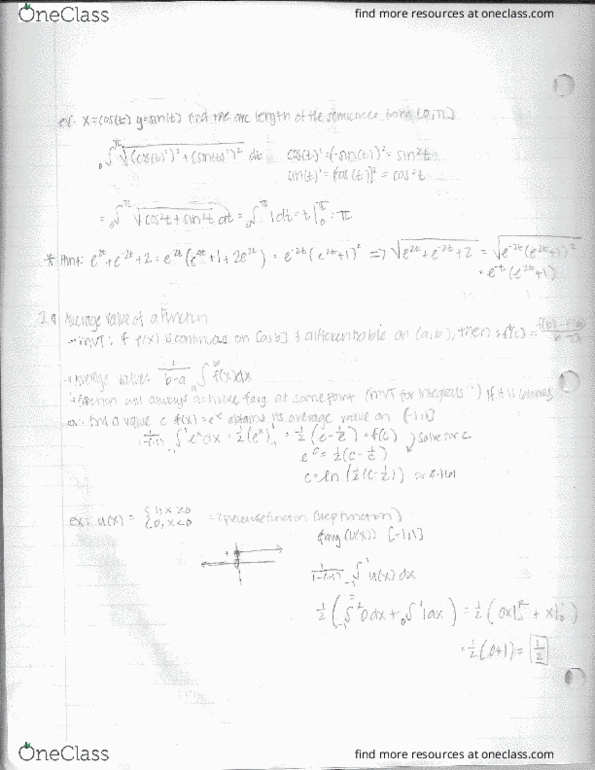 OneClass find more resources at oneclass.com
ex: x=cos(t) y=sin(t) find the arc length of the semicircle from [0,π]
₀∫^π √((cos(t)')² + (sin(t)')²) dt cos(t)' = (-sin(t))² = sin²t
sin(t)' = (cos(t))² = cos²t
= ₀∫^π √(cos²t + sin²t) dt = ₀∫^π 1dt = t|₀^π = π
* Hint: e^(2t) + e^(-2t) + 2 = e^(-2t)(e^(4t) + 1 + 2e^(2t)) = e^(-2t)(e^(2t)+1)² => √(e^(2t) + e^(-2t) + 2) = √(e^(-2t)(e^(2t)+1)²
= e^(-t)(e^(2t)+1)
Average value of a function
MVT: if f(x) is continuous on [a,b] & differentiable on (a,b), then f'(c) =
average value: 1/(b-a) ₐ∫^b f(x)dx
function will always achieve favg at some point (MVT for integrals) if it is continuous
find a value c f(x)=e^x obtains its average value on [-1,1]
1/(1-(-1)) ₋₁∫^1 e^x dx = 1/2(e^x)|₋₁^1 = 1/2(e - 1/e) = f(c) ) solve for c
e^c = 1/2(e - 1/e)
c = ln(1/2(e - 1/e)) ≈ 0.161
ex: u(x) = { 1, x≥0 => piecewise function (step function)
{ 0, x<0
favg (u(x)) [-1,1]
1/(1-(-1)) ₋₁∫^1 u(x)dx
1/2( ₋₁∫ 0dx + ₀∫^1 1dx ) = 1/2( 0x| + x|₀^1 )
= 1/2(0+1) = 1/2
OneClass find more resources at oneclass.com